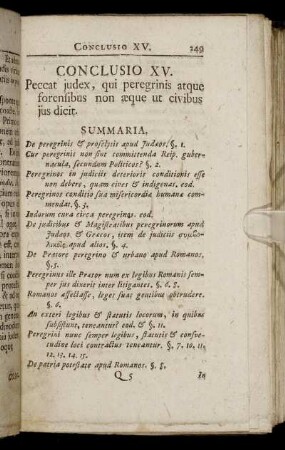 CONCLUSIO XV. 249
CONCLUSIO XV.
Peccat judex, qui peregrinis atque
forensibus non æque ut civibus
jus dicit.
SUMMARIA,
De peregrinis & proselytis apud Judæos, §. 1.
Cur peregrinis non sint committenda Reip. guber-
nacula, secundum Politicos? §. 2.
Peregrinos in judiciis deterioris conditionis esse
non debere, quam cives & indigenas, eod.
Peregrinos conditio sua misericordia humana com-
mendat, §. 3.
Judæorum cura circa peregrinos. eod.
De judicibus & Magistratibus peregrinorum apud
Judæos & Græcos, item de judiciis
apud alios. §. 4.
De Prætore peregrino & urbano apud Romanos.
§. 5.
Peregrinus ille Prætor num ex legibus Romanis sem-
per jus dixerit inter litigantes. §. 6. 8.
Romanos affectasse, leges suas gentibus obtrudere.
§. 6.
An exteri legibus & statutis locorum, in quibus
subsistunt, teneantur? eod. & §. 11.
Peregrini nunc semper legibus, statutis & consue-
tudine loci contractus teneantur. §. 7. 10. 11.
12. 13. 14. 15.
De patria potestate apud Romanos. §. 8.
Q 5 In